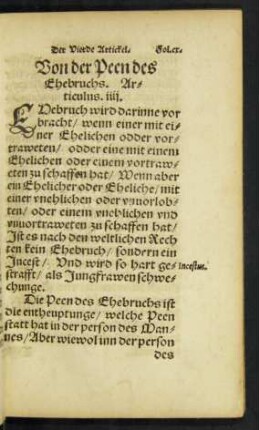 Der Vierde Artickel. Fol.cx.
Von der Peen des
Ehebruchs. Ar-
ticulus. iiij.
EHebruch wird darinne vor
bracht/ wenn einer mit ei-
ner Ehelichen odder vor-
traweten/ odder eine mit einem
Ehelichen oder einem vortraw-
eten zu schaffen hat/ Wenn aber
ein Ehelicher oder Eheliche/ mit
einer vnehlichen oder vnuorlob-
ten/ oder einem vnehlichen vnd
vnuortraweten zu schaffen hat/
Jst es nach den weltlichen Rech
ten kein Ehebruch/ sondern ein
Jncest/ Vnd wird so hart ge- incestus.
strafft/ als Jungfrawen schwe-
chunge.
Die Peen des Ehebruchs ist
die entheuptunge/ welche Peen
statt hat in der person des Man-
nes/ Aber wiewol inn der person
des